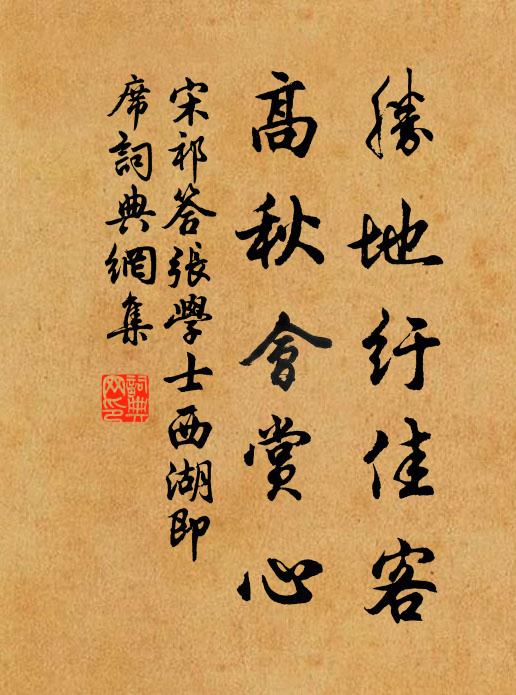 勝地紆佳客
高秋會賞心
宋祁答張學士西湖即
席詞典網集
詞典
网印